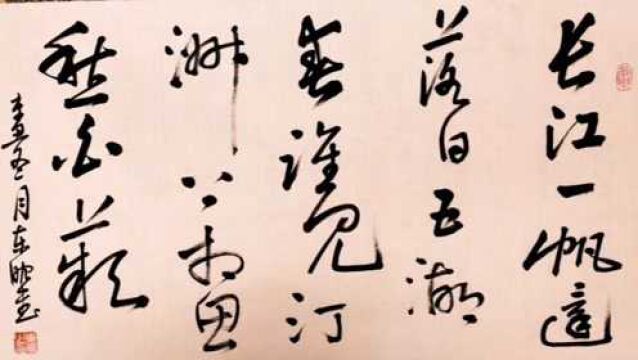 长江一帆遠
落日五湖
春谁见汀
洲上相思
愁白蘋
月东